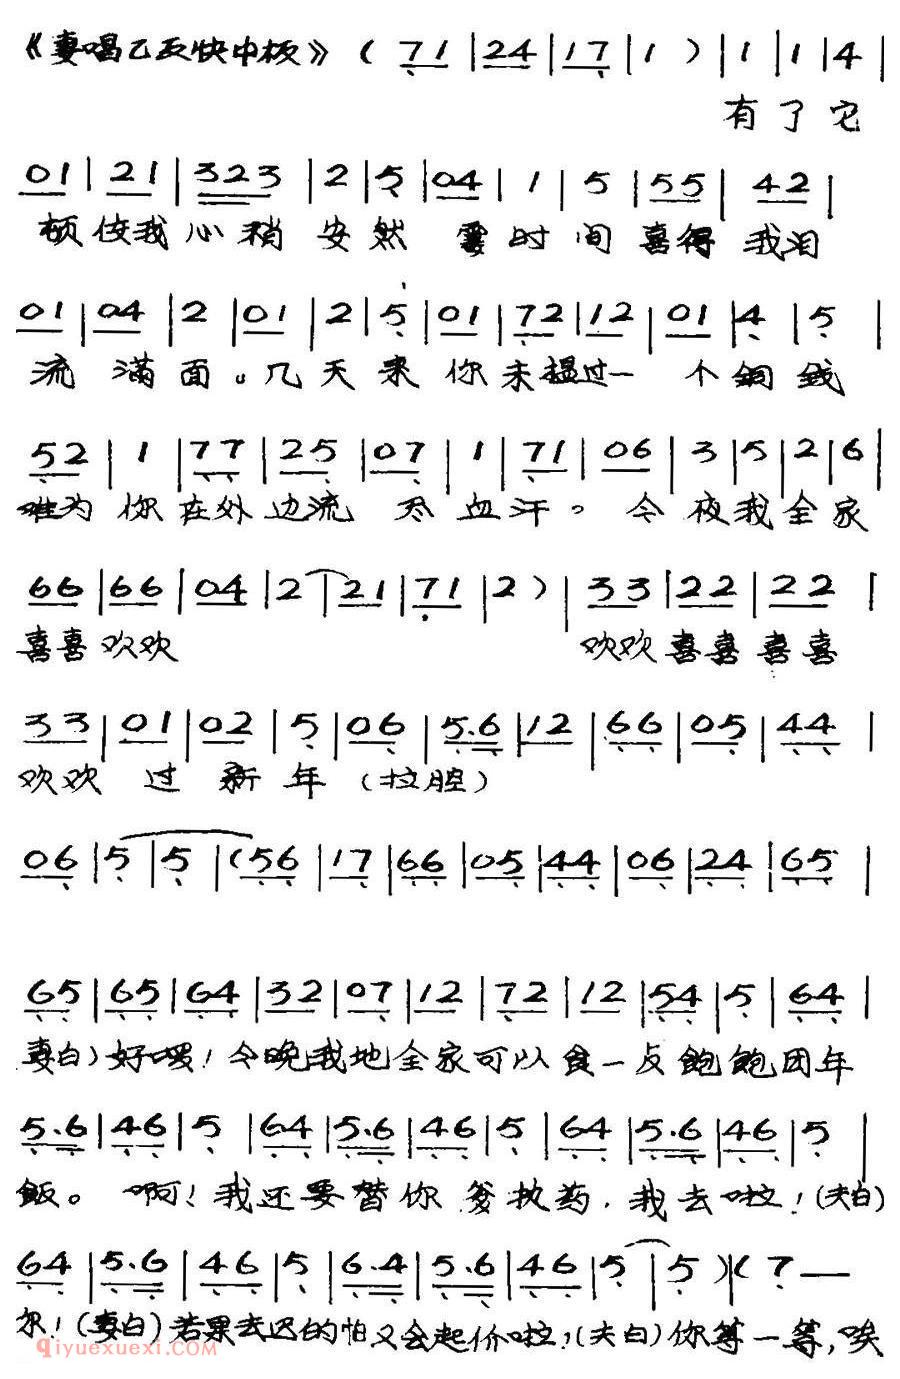 《妻唱乙反快中板》 ( 71 | 24 | 17 | 1 ) | 1 | 1 | 4 |
有了它
01 | 21 | 323 | 2 | 5 | 04 | 1 | 5 | 55 | 42 |
顿使我心稍安然霎时间喜得我泪
01 | 04 | 2 | 01 | 2 | 5 | 01 | 72 | 12 | 01 | 4 | 5 |
流满面。几天来你未揾过一个铜钱
52 | 1 | 77 | 25 | 07 | 1 | 71 | 06 | 3 | 5 | 2 | 6 |
难为你在外边流尽血汗。今夜我全家
66 | 66 | 04 | 2 | 21 | 71 | 2 ) | 33 | 22 | 22 |
喜喜欢欢 欢欢喜喜喜喜
33 | 01 | 02 | 5 | 06 | 5.6 | 12 | 66 | 05 | 44 |
欢欢过新年(拉腔)
06 | 5 | 5 | (56 | 17 | 66 | 05 | 44 | 06 | 24 | 65 |
65 | 65 | 64 | 32 | 07 | 12 | 72 | 12 | 54 | 5 | 64 |
妻白)好喂!今晚我地全家可以食一反飽飽团年
5.6 | 46 | 5 | 64 | 5.6 | 46 | 5 | 64 | 5.6 | 46 | 5 |
飯。啊!我还要替你爹执药,我去啦!(夫白)
64 | 5.6 | 46 | 5 | 6.4 | 5.6 | 46 | 5 | 5 )| ( 7 —
尔!(妻白)若果去迟的怕又会起价啦,(夫白)你等一等,唉
qiyuexuexi.com